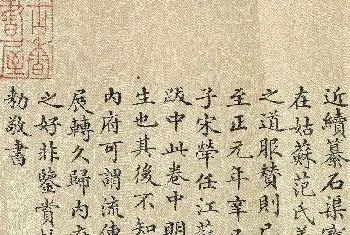 近續纂石渠寶
在姑蘇范氏義
之道服贊則已
至正元年辛
子宋犖任江蘇
跋中此卷中明
生也其後不知
內府可謂流傳
展轉久歸內
之好非鑒賞
勅敬書